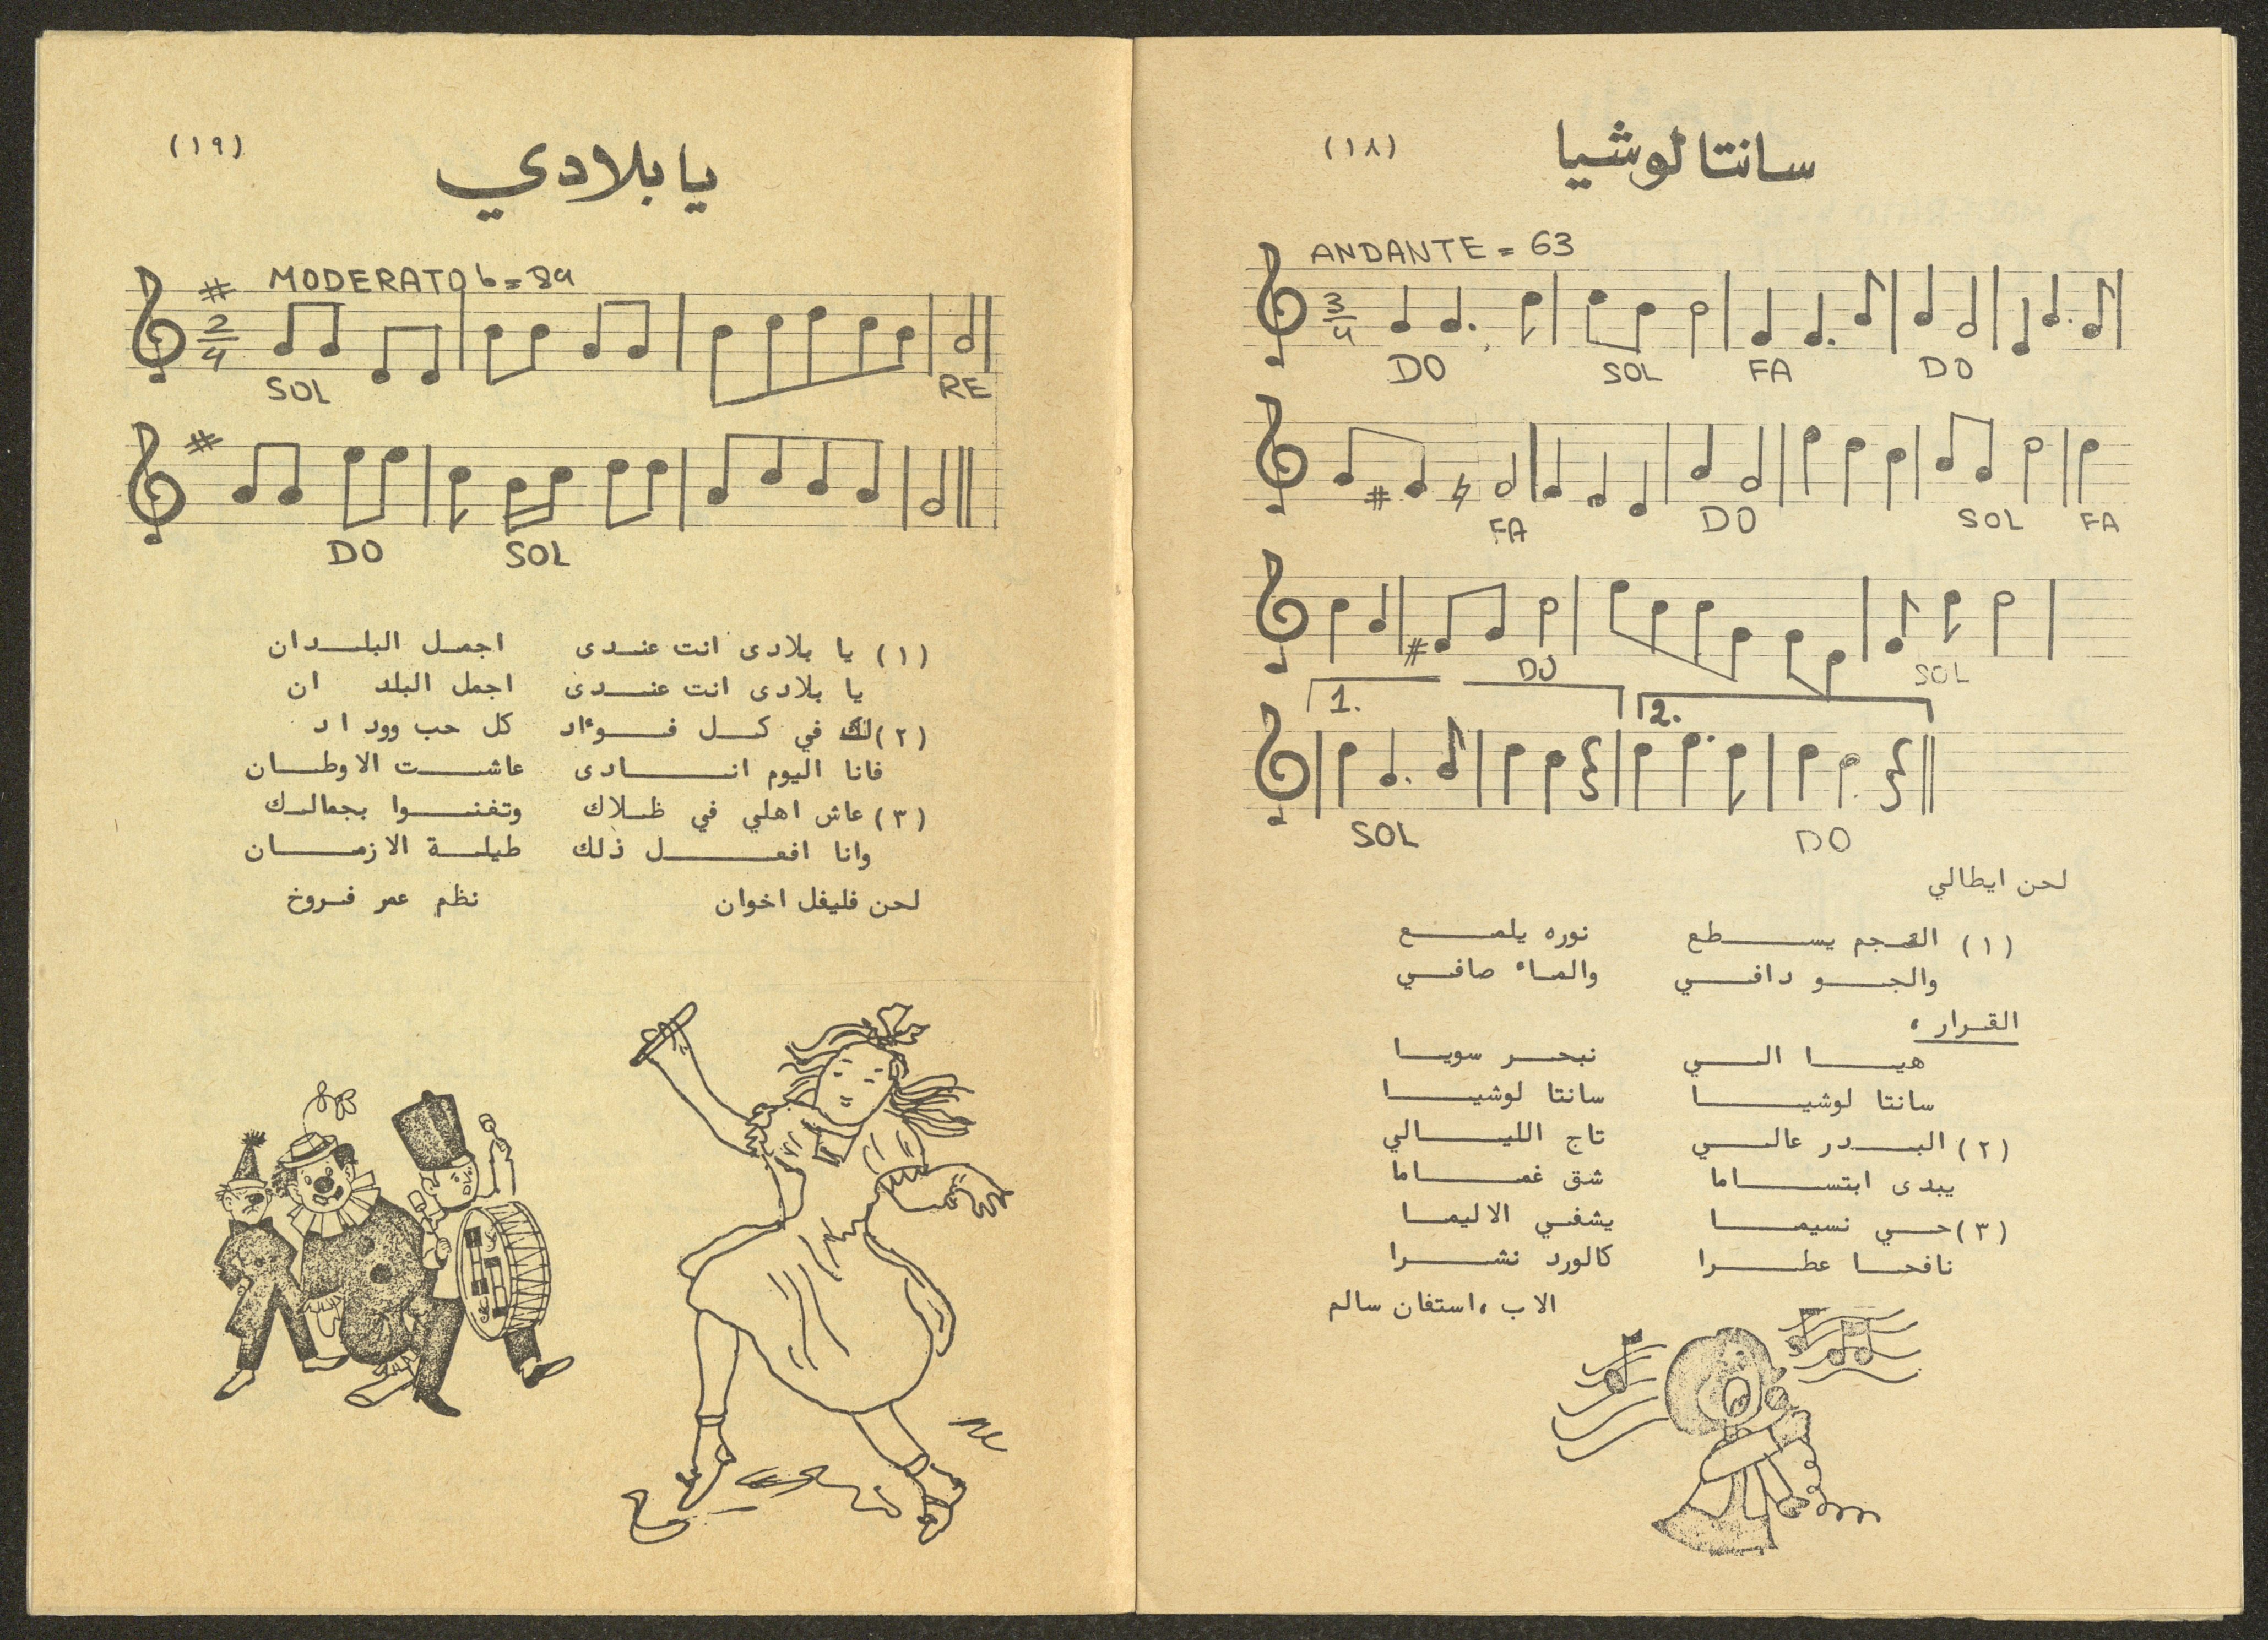 سانتا لوشيا
(١٨)
ANDANTE = 63
3/4
DO SOL FA DO
FA DO SOL FA
DO SOL
1. 2.
SOL DO
لحن ايطالي
(١) النجم يسطع نوره يلمع
والجو دافي والماء صافي
القرار ،
هيا الي نبحر سويا
سانتا لوشيا سانتا لوشيا
(٢) البدر عالي تاج الليالي
يبدى ابتساما شق غماما
(٣) حي نسيما يشفي الاليما
نافحا عطرا كالورد نشرا
الاب ، استفان سالم
يا بلادي
(١٩)
MODERATO = 89
2/4
SOL RE
DO SOL
(١) يا بلادى انت عندى اجمل البلدان
يا بلادى انت عندى اجمل البلد ان
(٢) لك في كل فؤاد كل حب وود اد
فانا اليوم انادى عاشت الاوطان
(٣) عاش اهلي في ظلاك وتغنوا بجمالك
وانا افعل ذلك طيلة الازمان
لحن فليفل اخوان نظم عمر فروخ